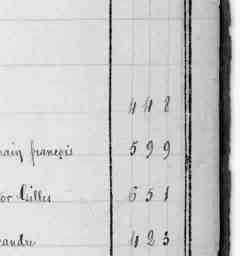 448
main françois 599
or Gilles 651
xandre 423